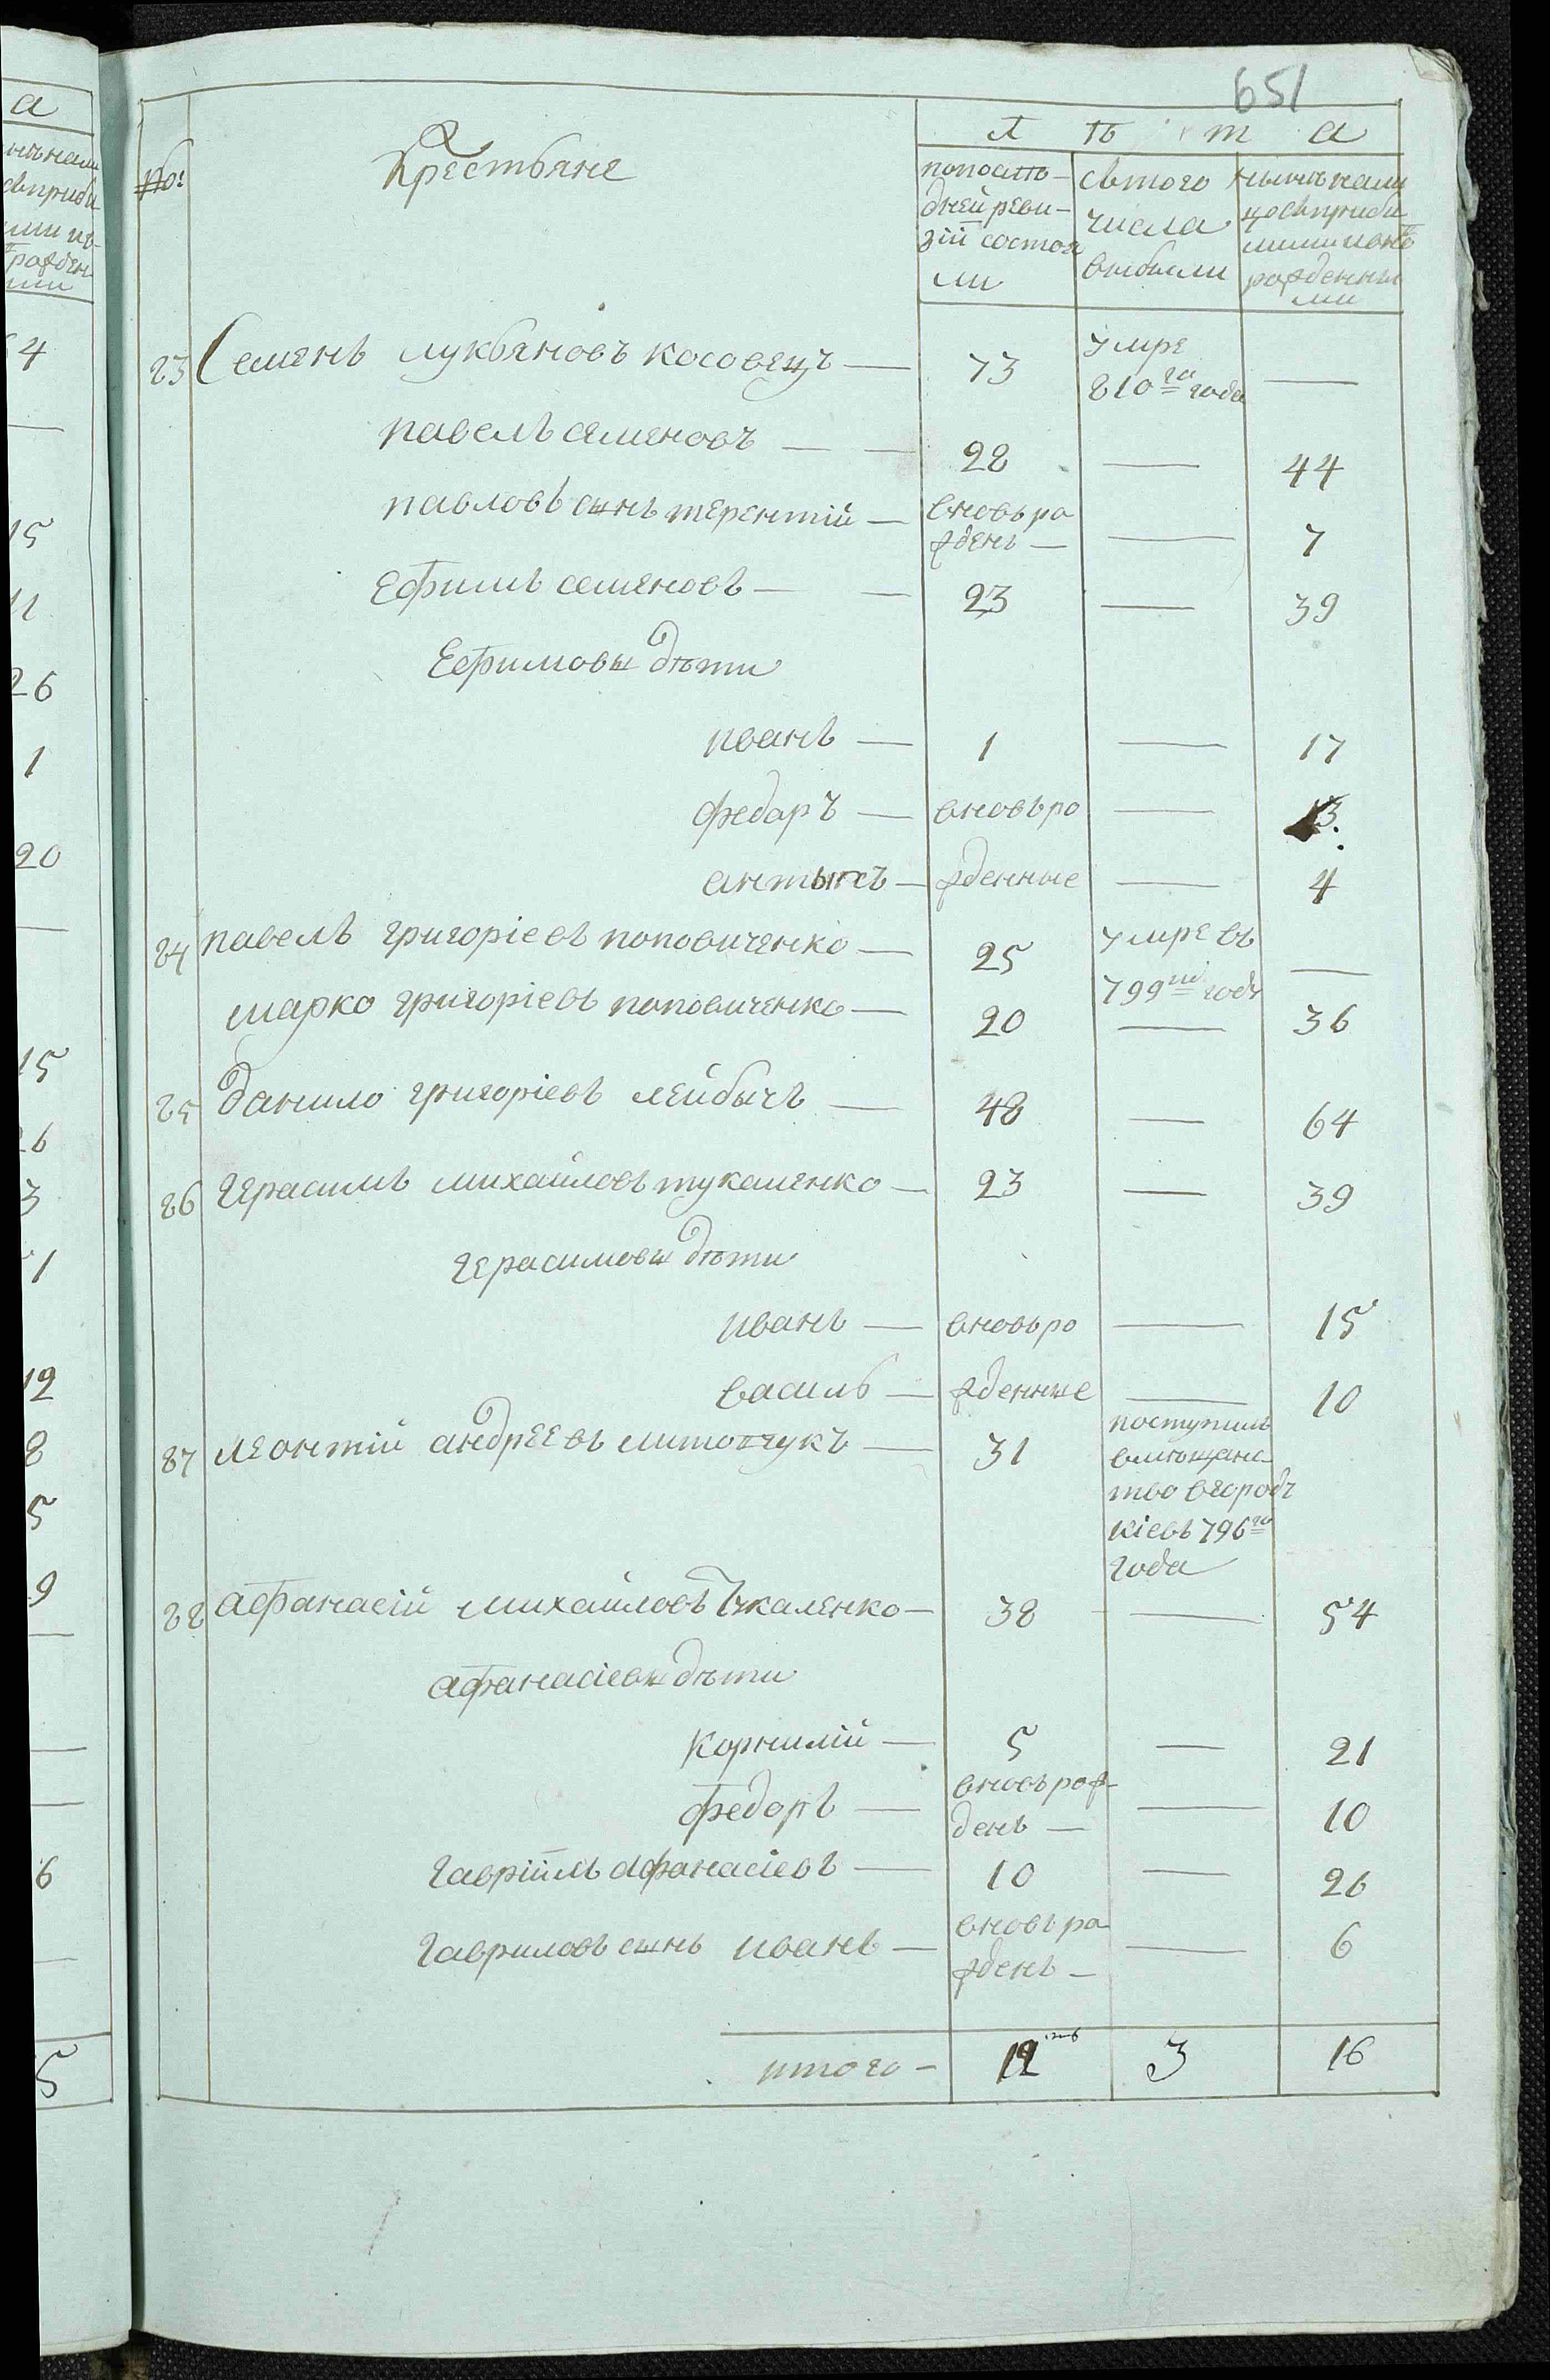 651
№:
Крестьяне
Л ѣ т а
попослѣ-
дней реви-
зіи состоя
ли
сътого
числа
выбыли
нынѣ нали
цо съприбы
лыми и новоро
рожденны
ми
83 Семенъ лукьяновъ косовецъ — 73 умре —
810го года
павелъ семеновъ — — 28 — 44
павловъ сынъ терентій — вновь ро
жденъ — — 7
Ефимъ семеновъ — — 23 — 39
Ефимовы дѣти
иванъ — 1 — 17
федаръ — вновь ро — 13.
антыпъ — жденные — 4
84 павелъ григоріевъ поповиченко — 25 умре въ —
799мъ году
марко григоріевъ поповиченко — 20 — 36
85 данило григоріевъ лейбычъ — 48 — 64
86 герасимъ михайловъ тукаленко — 23 — 39
герасимовы дѣти
иванъ — вновь ро — 15
василь — жденные — 10
87 леонтій андреевъ литовчукъ — 31 поступилъ
вмѣщанс
тво вгородъ
кіевъ 796го
года
88 афанасій михайловъ Тукаленко — 38 — 54
афанасіевы дѣти
корнилій — 5 — 21
федоръ — вновь рож-
денъ — — 10
гавріилъ афанасіевъ — 10 — 26
гавриловъ сынъ иванъ — вновь ро
жденъ — — 6
итого — 12 3 16